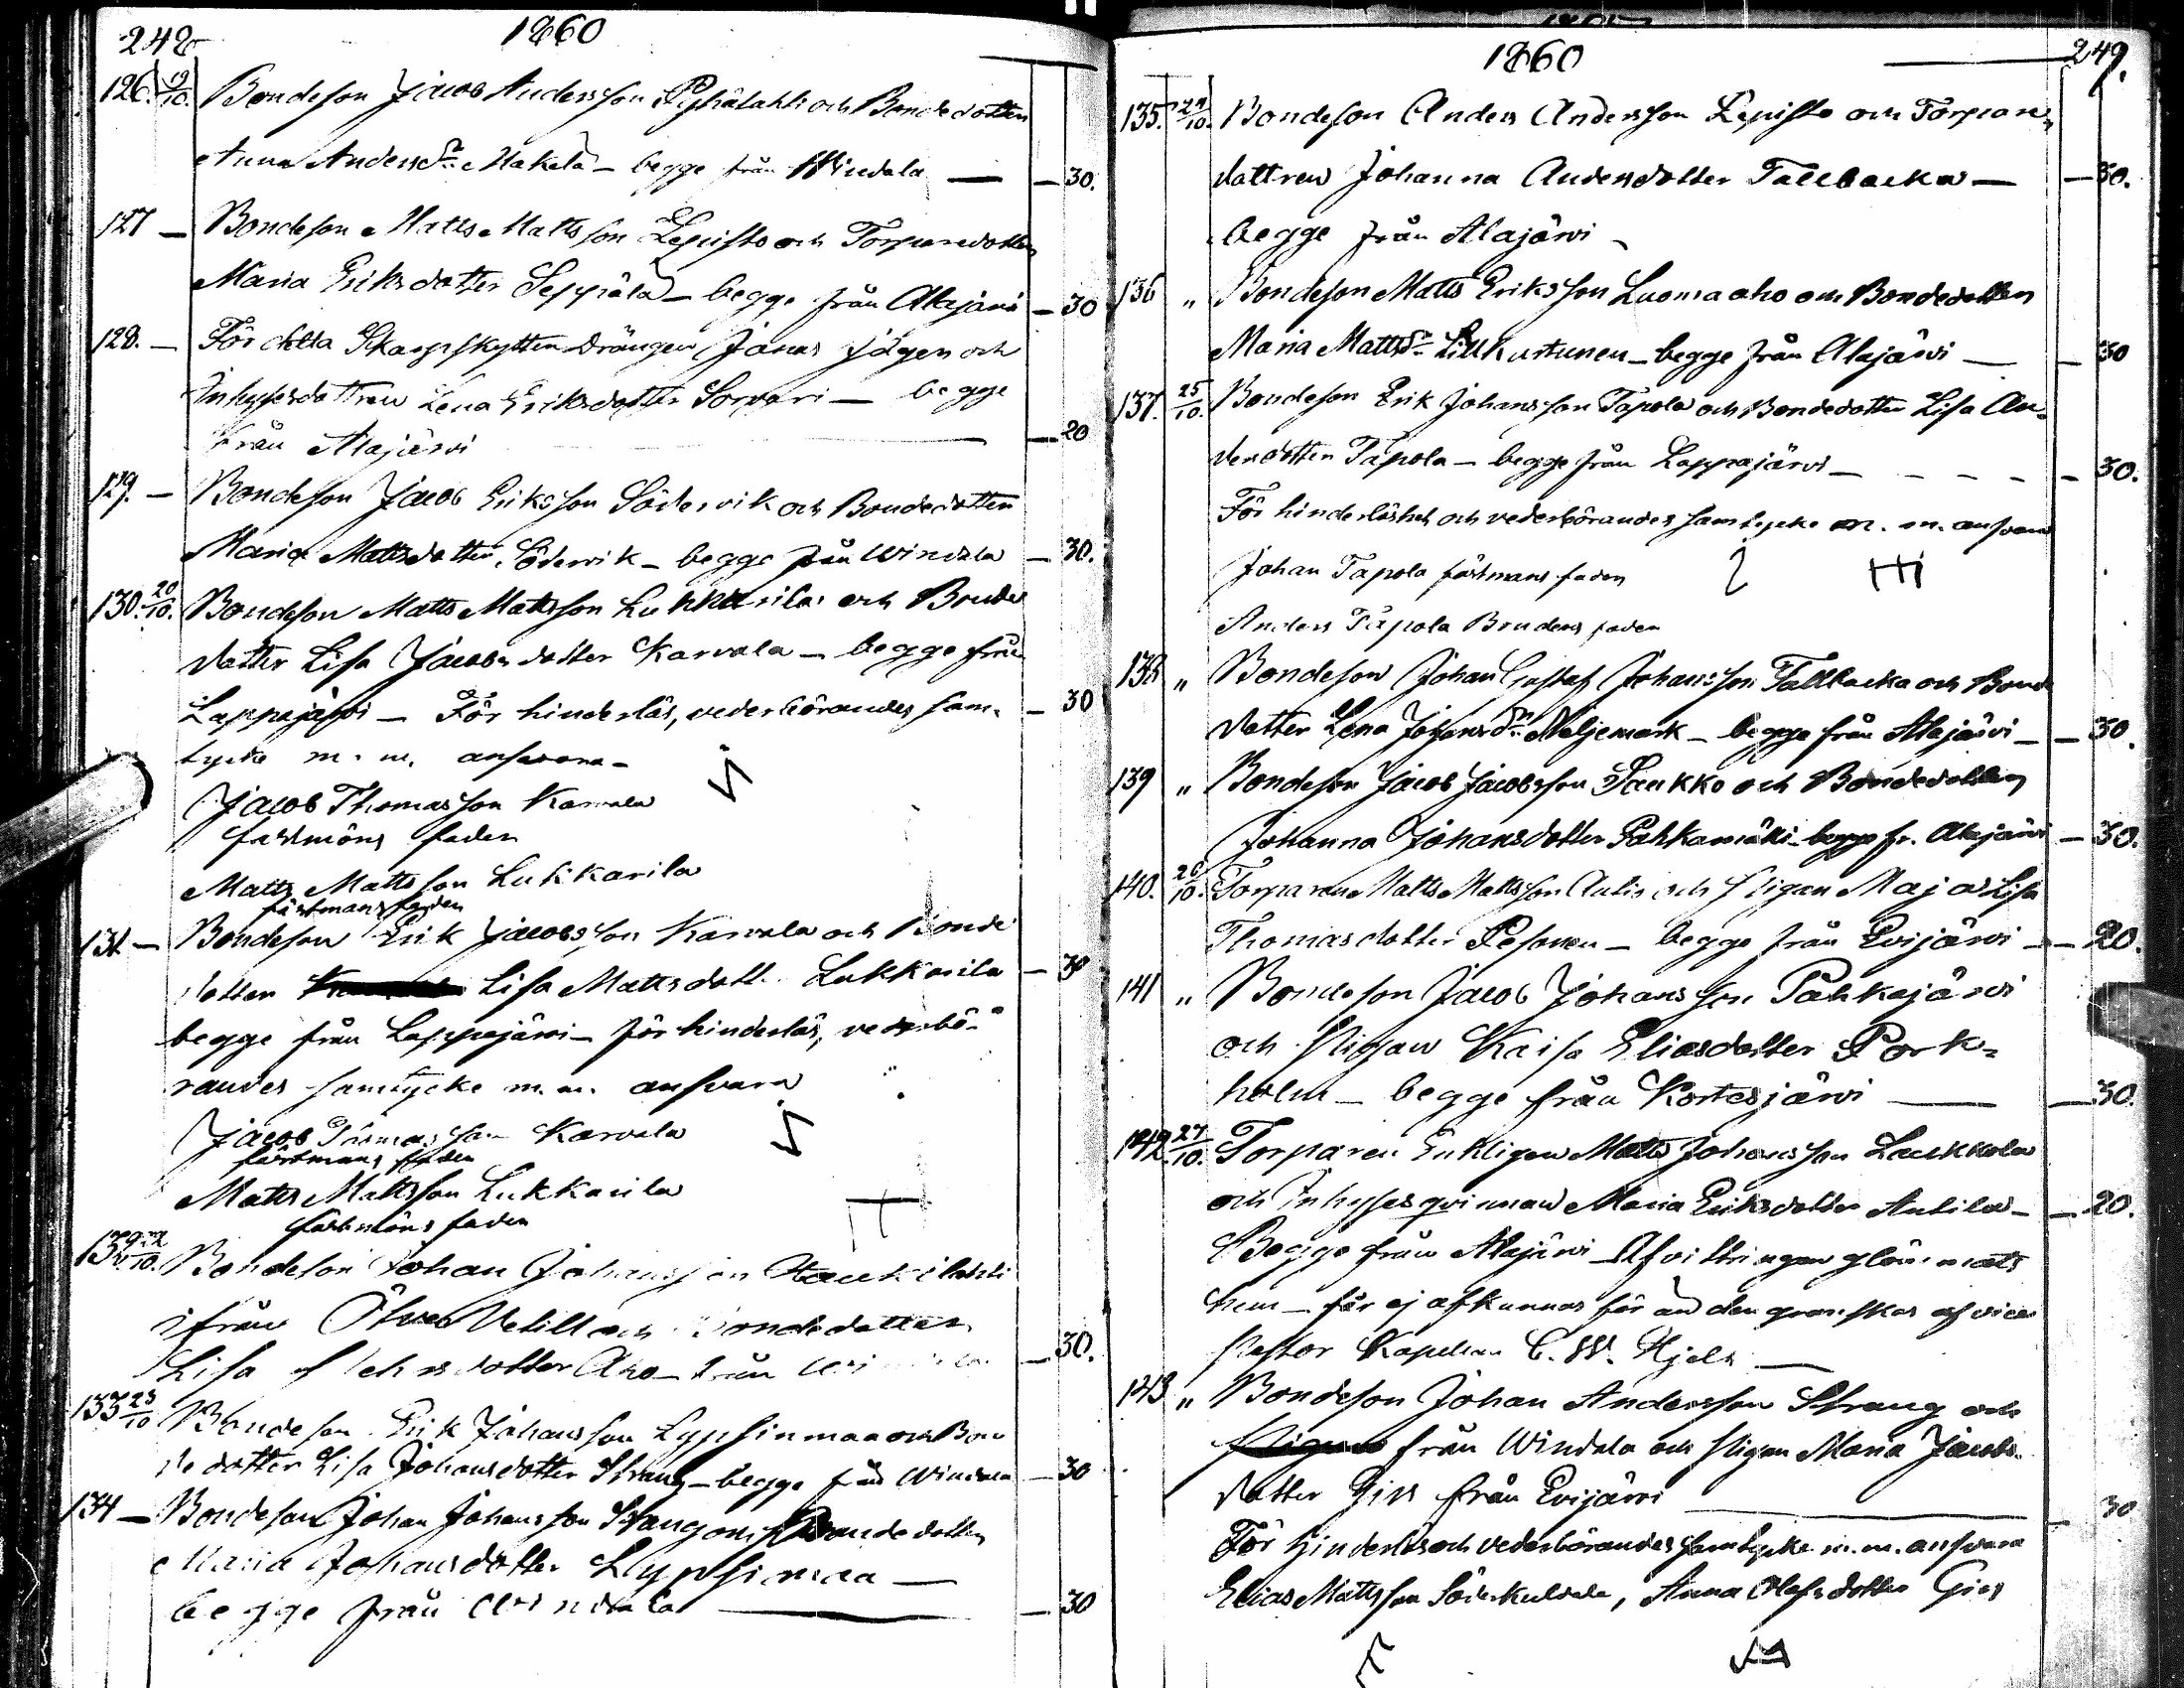 248
1860
126. 19/10. Bondeson Jacob Andersson Pyhälahti och Bondedottren
Anna Andersdr Makela – begge från Windala — — 30.
127 — Bondeson Matts Mattsson Lepisto och Torparedottren
Maria Eriksdotter Seppälä – begge från Alajärvi — 30
128. — Före detta Skarpskytten Drängen Jonas Jägen och
Inhysesdottren Lena Eriksdotter Sorvari — begge
från Alajärvi — 20
129. — Bondeson Jacob Eriksson Södervik och Bondedottren
Maria Mattsdotter Södervik – begge från Windala — 30.
130. 20/10. Bondeson Matts Mattsson Lukkarila och Bonde
dotter Lisa Jacobsdotter Karvala – begge från
Lappajärvi – För hinderlös, vederbörandes sam- — 30
tycke m. m. ansvara –
Jacob Thomasson Karvala
fästmöns fader
Matts Mattsson Lukkarila
fästmans fader
131 — Bondeson Erik Jacobsson Karvala och Bonde
dotter Lisa Mattsdott. Lukkarila — 30
begge från Lappajärvi – för hinderlös, vederbö-
randes samtycke m.m. ansvara
Jacob Thomasson Karvala
fästmans fader
Matts Mattsson Lukkarila
fästmöns fader
132 22/10. Bondeson Johan Johansson
ifrån Öfver Vetill och Bondedotter
Lisa dotter Aho – från — 30.
133 23/10 Bondeson Erik Johansson Lypsinmaa och Bon
dedotter Lisa Johansdotter Strang – begge från Windala — 30
134 — Bondeson Johan Johansson Strang och Bondedotter
Maria Johansdotter Lypsinmaa —
begge från Windala — 30
1860
249.
135. 24/10. Bondeson Anders Andersson Lepisto och Torpare-
dottren Johanna Andersdotter Tallbacka — — 30.
begge från Alajärvi –
136 " Bondeson Matts Eriksson Luomaaho och Bondedotter
Maria Mattsdr Lill Kurtunen – begge från Alajärvi — — 30
137. 25/10. Bondeson Erik Johansson Tapola och Bondedotter Lisa An-
dersdotter Tapola – begge från Lappajärvi – — 30.
För hinderlöshet och vederbörandes samtycke m. m. ansvara
Johan Tapola fästmans fader
Anders Tapola Brudens fader
138 " Bondeson Johan Gustaf Johansson Tallbacka och Bonde
dotter Lena Johansdr Neljemark – begge från Alajärvi – — 30.
139 " Bondeson Jacob Jacobsson Saukko och Bondedotter
Johanna Johansdotter Pahkamäki – begge fr. Alajärvi — 30.
140. 26/10. Torparen Matts Mattsson Aulis och pigan Maja Lisa
Thomasdotter Pesonen – begge från Evijärvi – — 20.
141 " Bondeson Jacob Johansson Pahkajärvi
och Pigan Kaisa Eliasdotter Pork-
holm – begge från Kortesjärvi — — 30.
142. 27/10. Torparen Enklingen Matts Johansson Laukkola
och Inhysesqvinnan Maria Eriksdotter Antila – — 20.
Begge från Alajärvi – Afvittringen glömmats
hem – får ej afkunnas för än den granskas af vice
Pastor Kapellan C. W. Hjelt —
143 " Bondeson Johan Andersson Strang och
från Windala och Pigan Maria Jacobs-
dotter Gers från Evijärvi — 30
För hinderlös och vederbörandes samtycke m.m. ansvara
Elias Mattsson Söderkultala, Anna Olofsdotter Gers